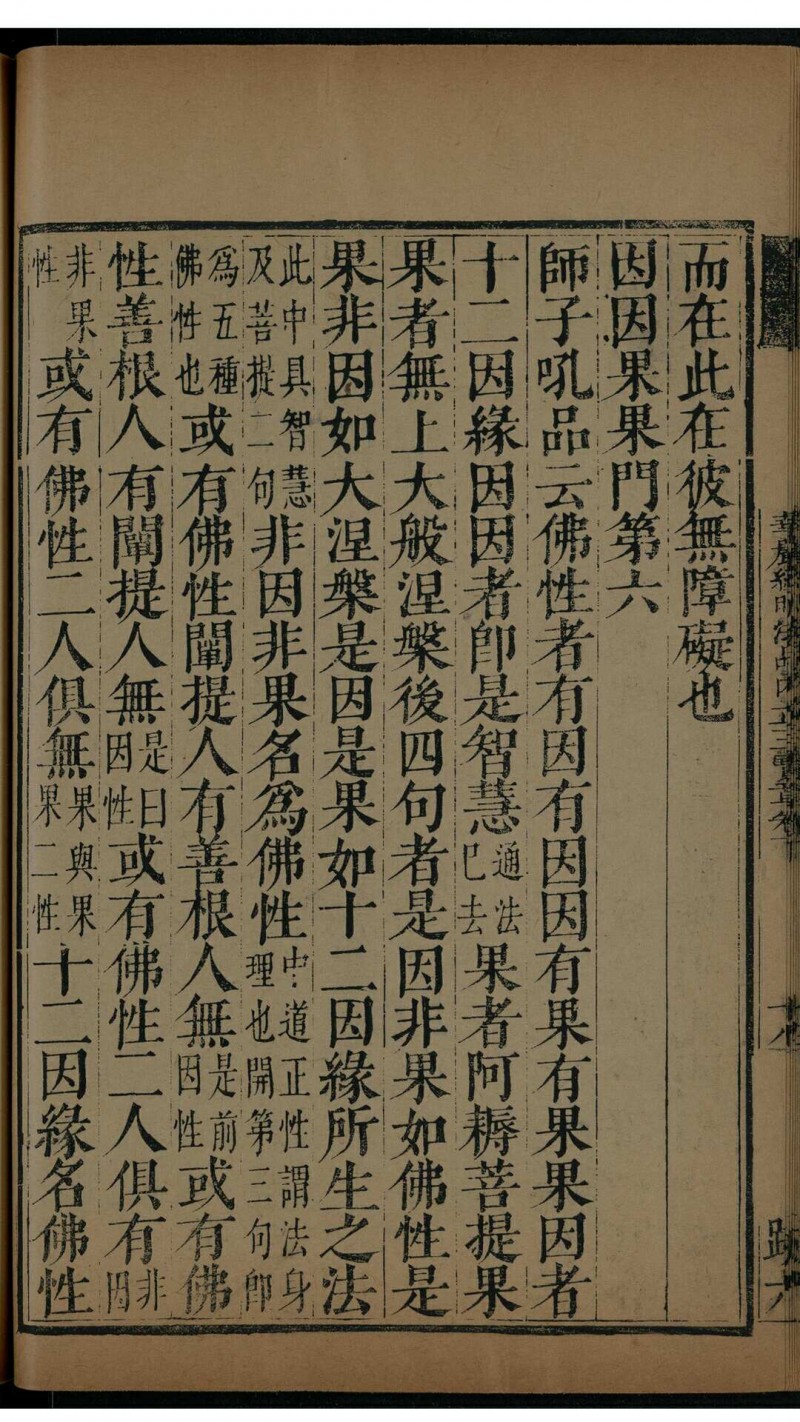 而在此在彼無障礙也
因因果果門第六
師子吼品云佛性者有因有因因有果有果果因者
十二因緣因因者卽是智慧通法巳去果者阿耨菩提果
果者無上大般涅槃後四句者是因非果如佛性是
果非因如大涅槃是因是果如十二因緣所生之法
此中具智慧及菩提二句非因非果名爲佛性中道正性謂法身理也開第三句卽
爲五種佛性也或有佛性闡提人有善根人無是前因性或有佛
性善根人有闡提人無是曰因性或有佛性二人俱有非因
非果性或有佛性二人俱無果與果果二性十二因緣名佛性